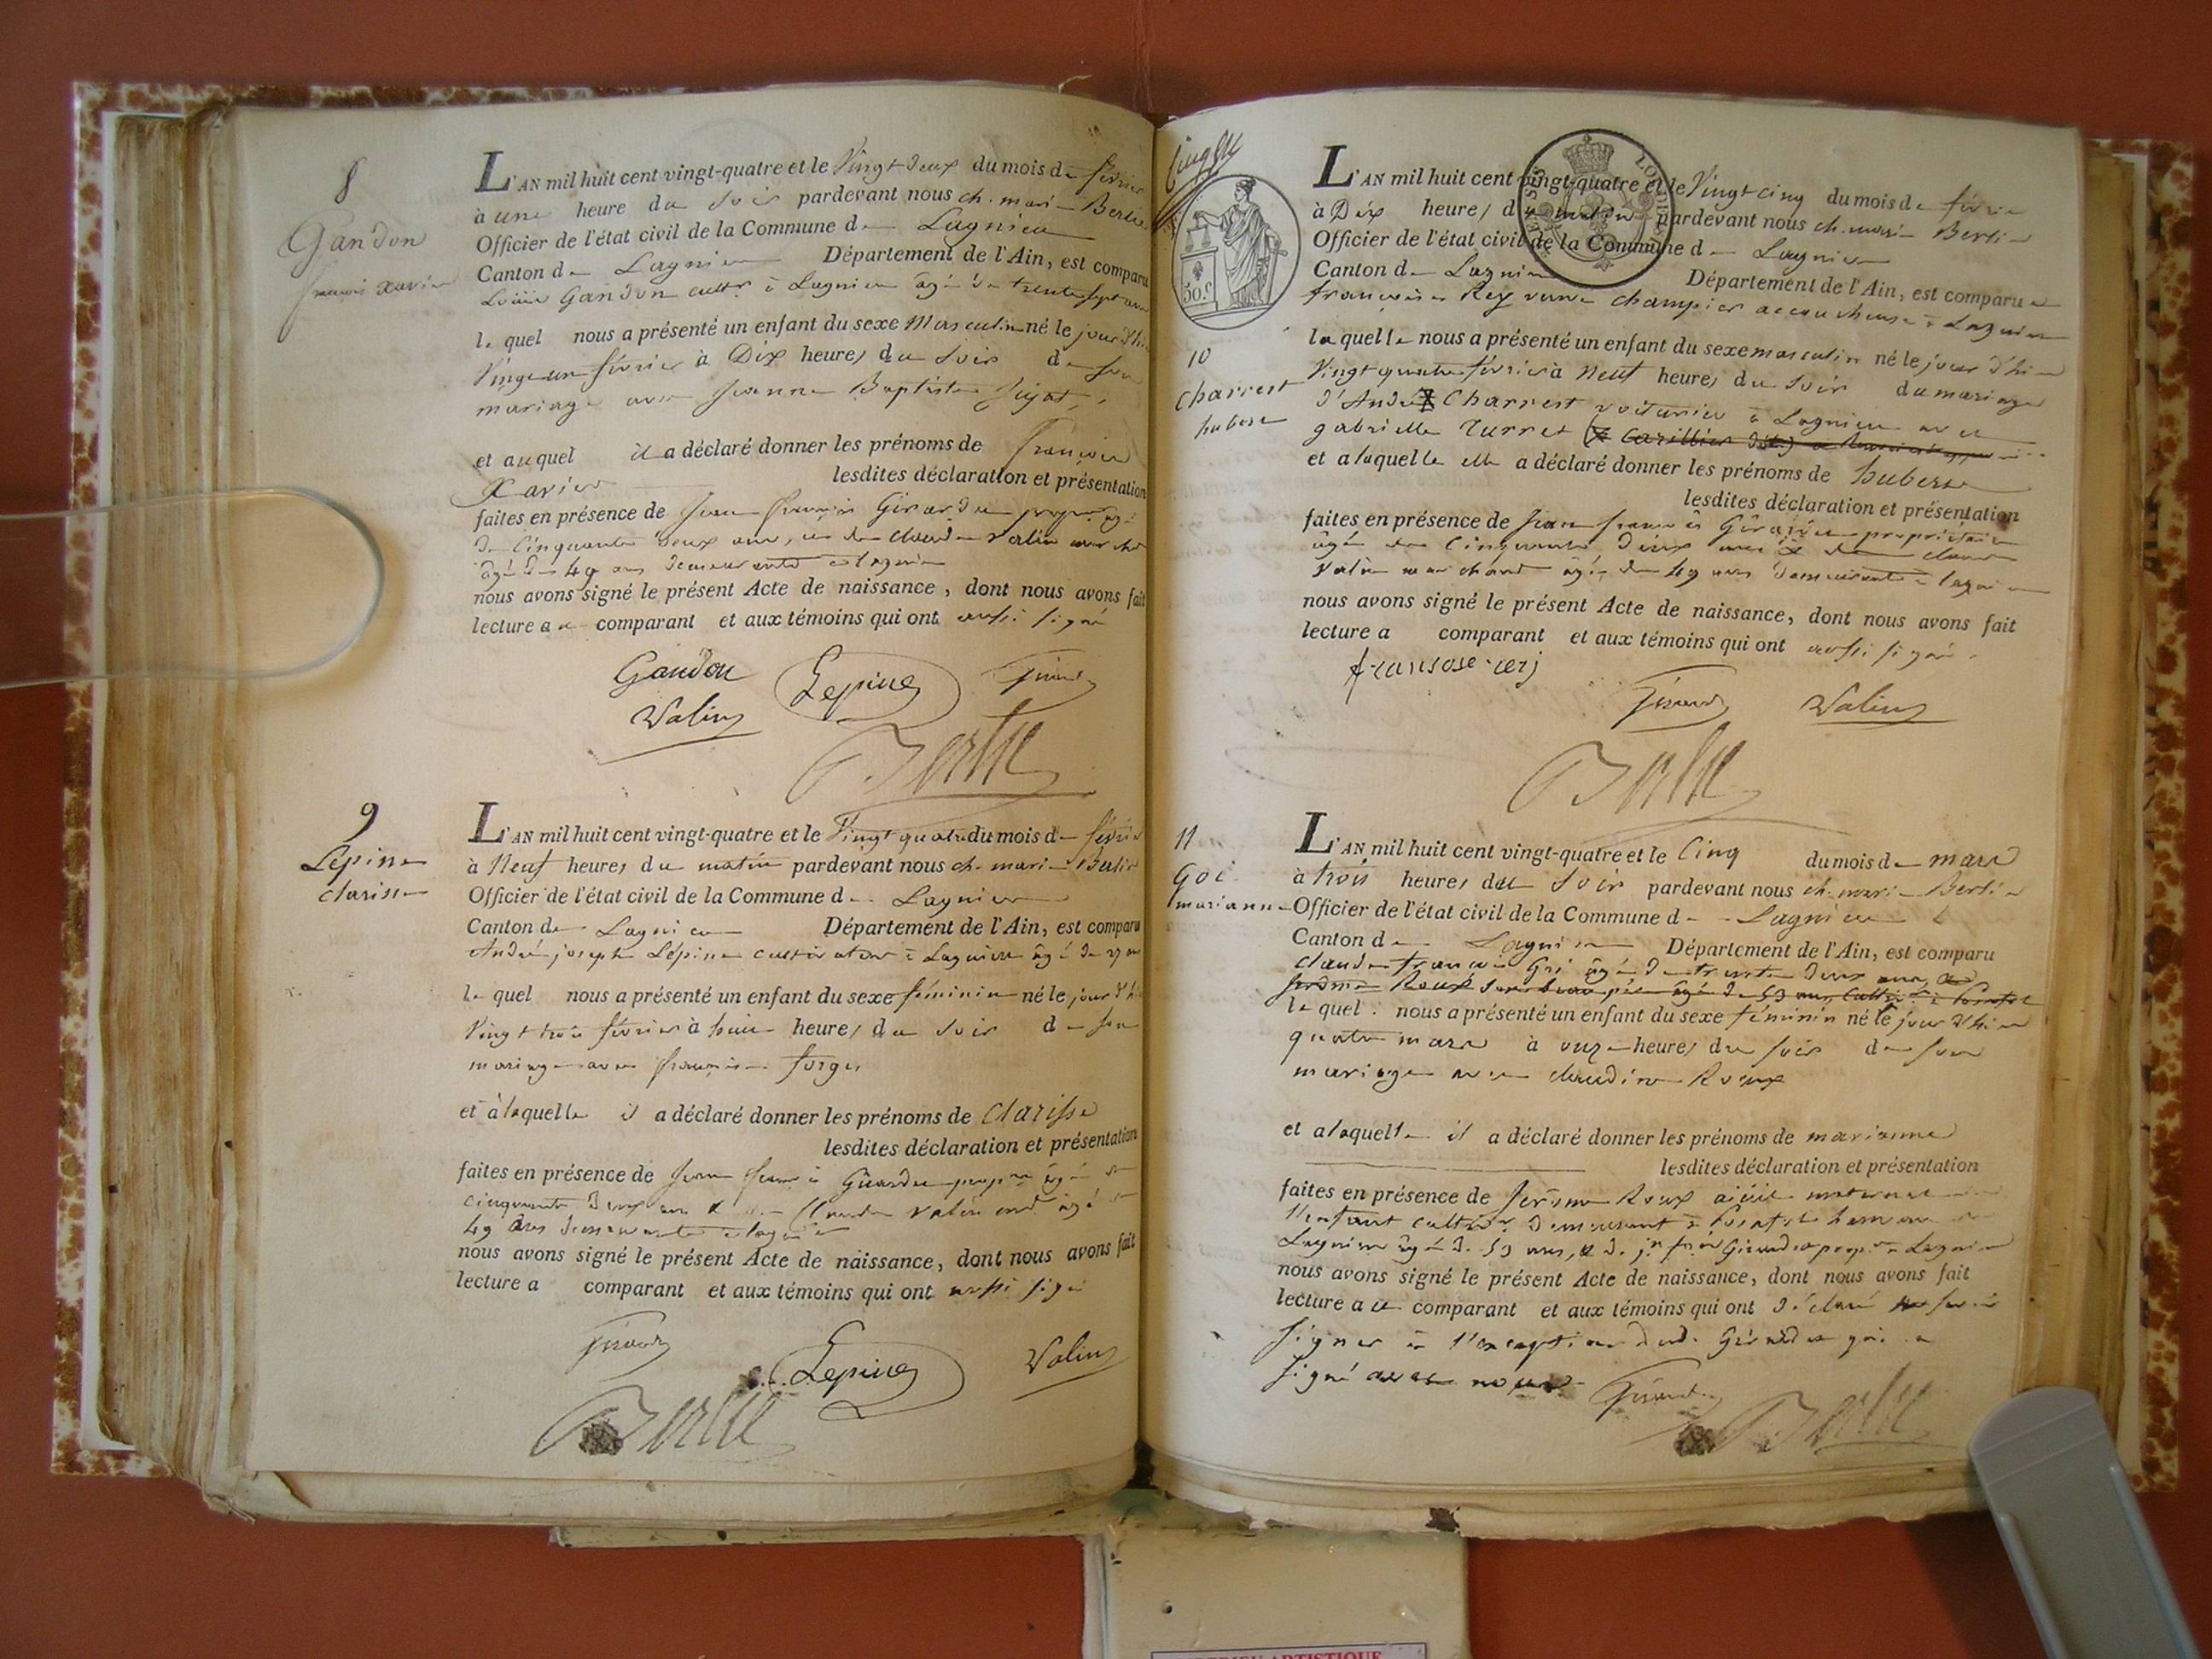 8
Gandon
françois xavier
L'AN mil huit cent vingt-quatre et le Vingt deux du mois de février
à une heure du soir pardevant nous ch. marie Berlie
Officier de l'état civil de la Commune de Lagnieu
Canton de Lagnieu Département de l'Ain, est comparu
Gandon cultr à Lagnieu âgé de trente sept ans
le quel nous a présenté un enfant du sexe Masculin né le jour d'hier
Vingt un février à Dix heures du soir de son
mariage avec Jeanne Baptiste
et auquel il a déclaré donner les prénoms de françois
Xavier lesdites déclaration et présentation
faites en présence de Jean françois Girardu âgé
de Cinquante deux ans, et de Claude Valin marchd
âgé de 49 ans demeurants à lagnieu
nous avons signé le présent Acte de naissance, dont nous avons fait
lecture au comparant et aux témoins qui ont aussi signé
Gandon Lepine
Valin
Berlie
9
Lépine
clarisse
L'AN mil huit cent vingt-quatre et le Vingt quatre du mois de février
à Neuf heures du matin pardevant nous ch. marie Berlie
Officier de l'état civil de la Commune de Lagnieu
Canton de Lagnieu Département de l'Ain, est comparu
André joseph Lépine cultivateur à Lagnieu âgé de
le quel nous a présenté un enfant du sexe féminin né le jour d'hier
Vingt trois février à huit heures du soir de son
mariage avec françoise forge
et à laquelle il a déclaré donner les prénoms de Clarisse
lesdites déclaration et présentation
faites en présence de Jean françois Girardu âgé de
cinquante deux ans & de Claude Valin md âgé de
49 ans demeurants à lagnieu
nous avons signé le présent Acte de naissance, dont nous avons fait
lecture a comparant et aux témoins qui ont aussi signé
Lepine Valin
Berlie
50.c
10
Charrest
hubert
L'AN mil huit cent vingt-quatre et le Vingt cinq du mois de février
à Dix heures du matin pardevant nous ch. marie Berlie
Officier de l'état civil de la Commune de Lagnieu
Canton de Lagnieu Département de l'Ain, est comparue
françoise Rey veuve Champier accoucheuse à Lagnieu
laquelle nous a présenté un enfant du sexe masculin né le jour d'hier
Vingt quatre février à Neuf heures du soir du mariage
d'André Charrest voiturier à Lagnieu avec
gabrielle Turret
et a laquelle elle a déclaré donner les prénoms de hubert
lesdites déclaration et présentation
faites en présence de Jean françois Girardu propriétaire
âgé de Cinquante deux ans & de claude
Valin marchand âgé de 49 ans demeurants à lagnieu
nous avons signé le présent Acte de naissance, dont nous avons fait
lecture a comparant et aux témoins qui ont aussi signé
fransose rej
Valin
Berlie
11
Goi
marianne
L'AN mil huit cent vingt-quatre et le Cinq du mois de mars
à trois heures du soir pardevant nous ch. marie Berlie
Officier de l'état civil de la Commune de Lagnieu
Canton de Lagnieu Département de l'Ain, est comparu
claude françois Goi âgé de trente deux ans,
Jérôme Roux beau père âgé de 53 ans,
le quel nous a présenté un enfant du sexe féminin né le jour d'hier
quatre mars à onze heures du soir de son
mariage avec claudine Roux
et a laquelle il a déclaré donner les prénoms de marianne
lesdites déclaration et présentation
faites en présence de Jérôme Roux aïeul maternel de
l'enfant cultivr demeurant à hameau de
Lagnieu âgé de 53 ans, & de jn fçois Girardu propre à Lagnieu
nous avons signé le présent Acte de naissance, dont nous avons fait
lecture au comparant et aux témoins qui ont déclaré
signer à l'exception dud. Girardu qui a
signé avec nous
Berlie